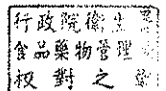 行政院衛生署
食品藥物管理
校對之章